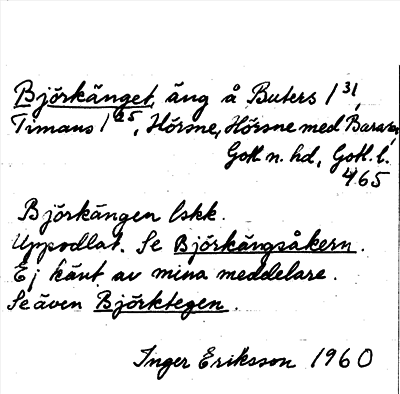 Björkänget, äng å Buters 1 31,
Timans 1 25, Hörsne, Hörsne med Bara sn,
Gotl. n. hd, Gotl. l.
465
Björkängen lskk.
Uppodlat. Se Björkängsåkern.
Ej känt av mina meddelare.
Se även Björktegen.
Inger Eriksson 1960